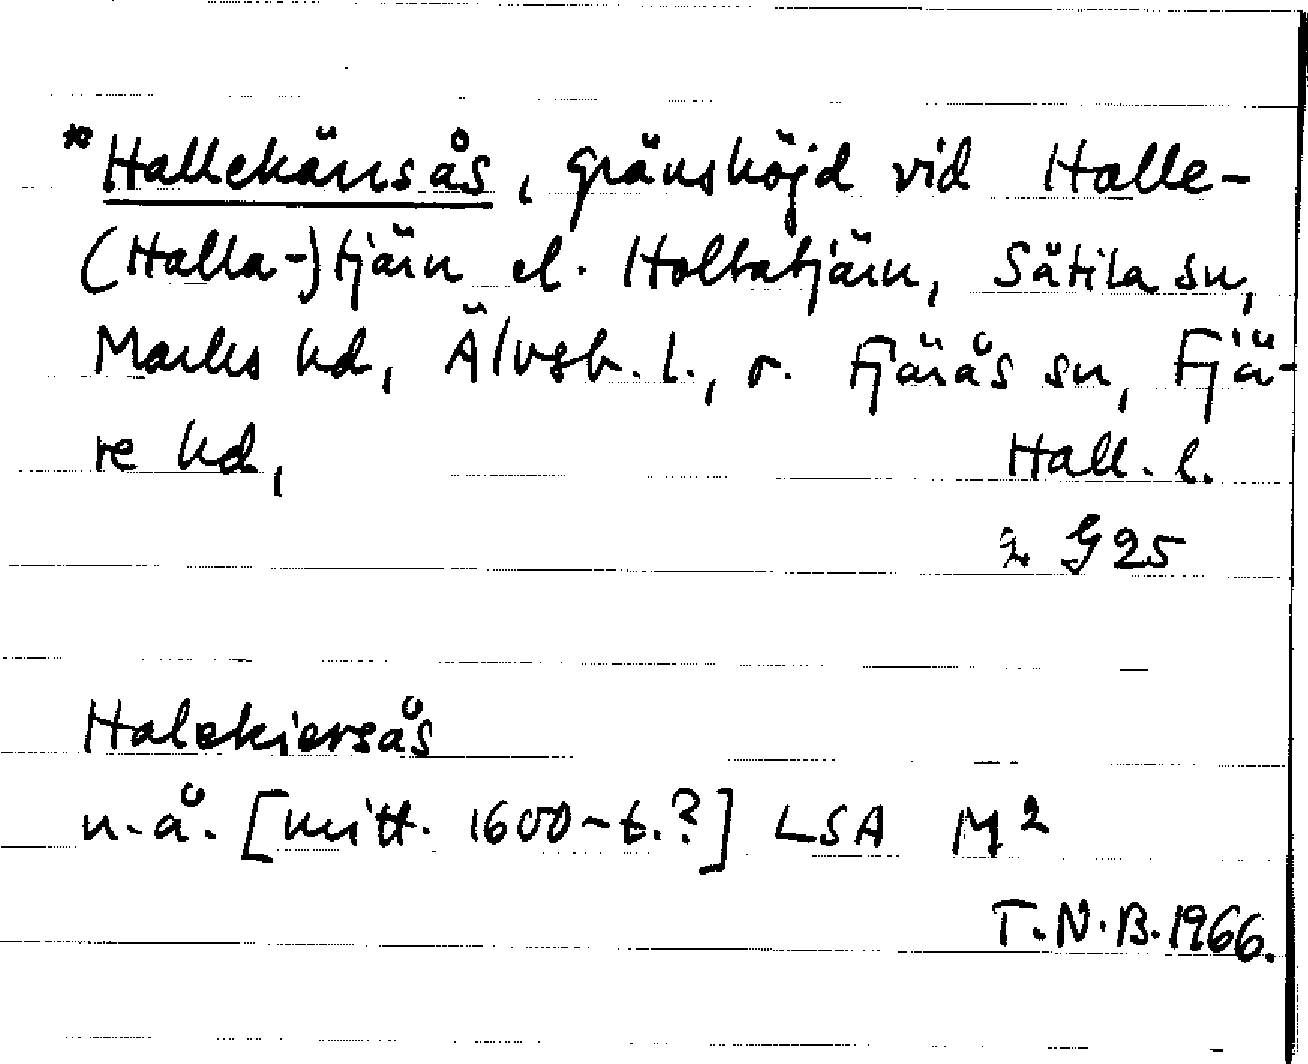 *Hallekärrsås, gränshöjd vid Halle-
(Halla-)tjärn el. Holtatjärn, Sätila sn,
Marks hd, Älvsb. l., o. Fjärås sn, Fjä-
re hd, Hall. l.
2 G 25
Halekiersås
u.å. [mitt. 1600-t.?] LSA M 2
T.N.B. 1966.